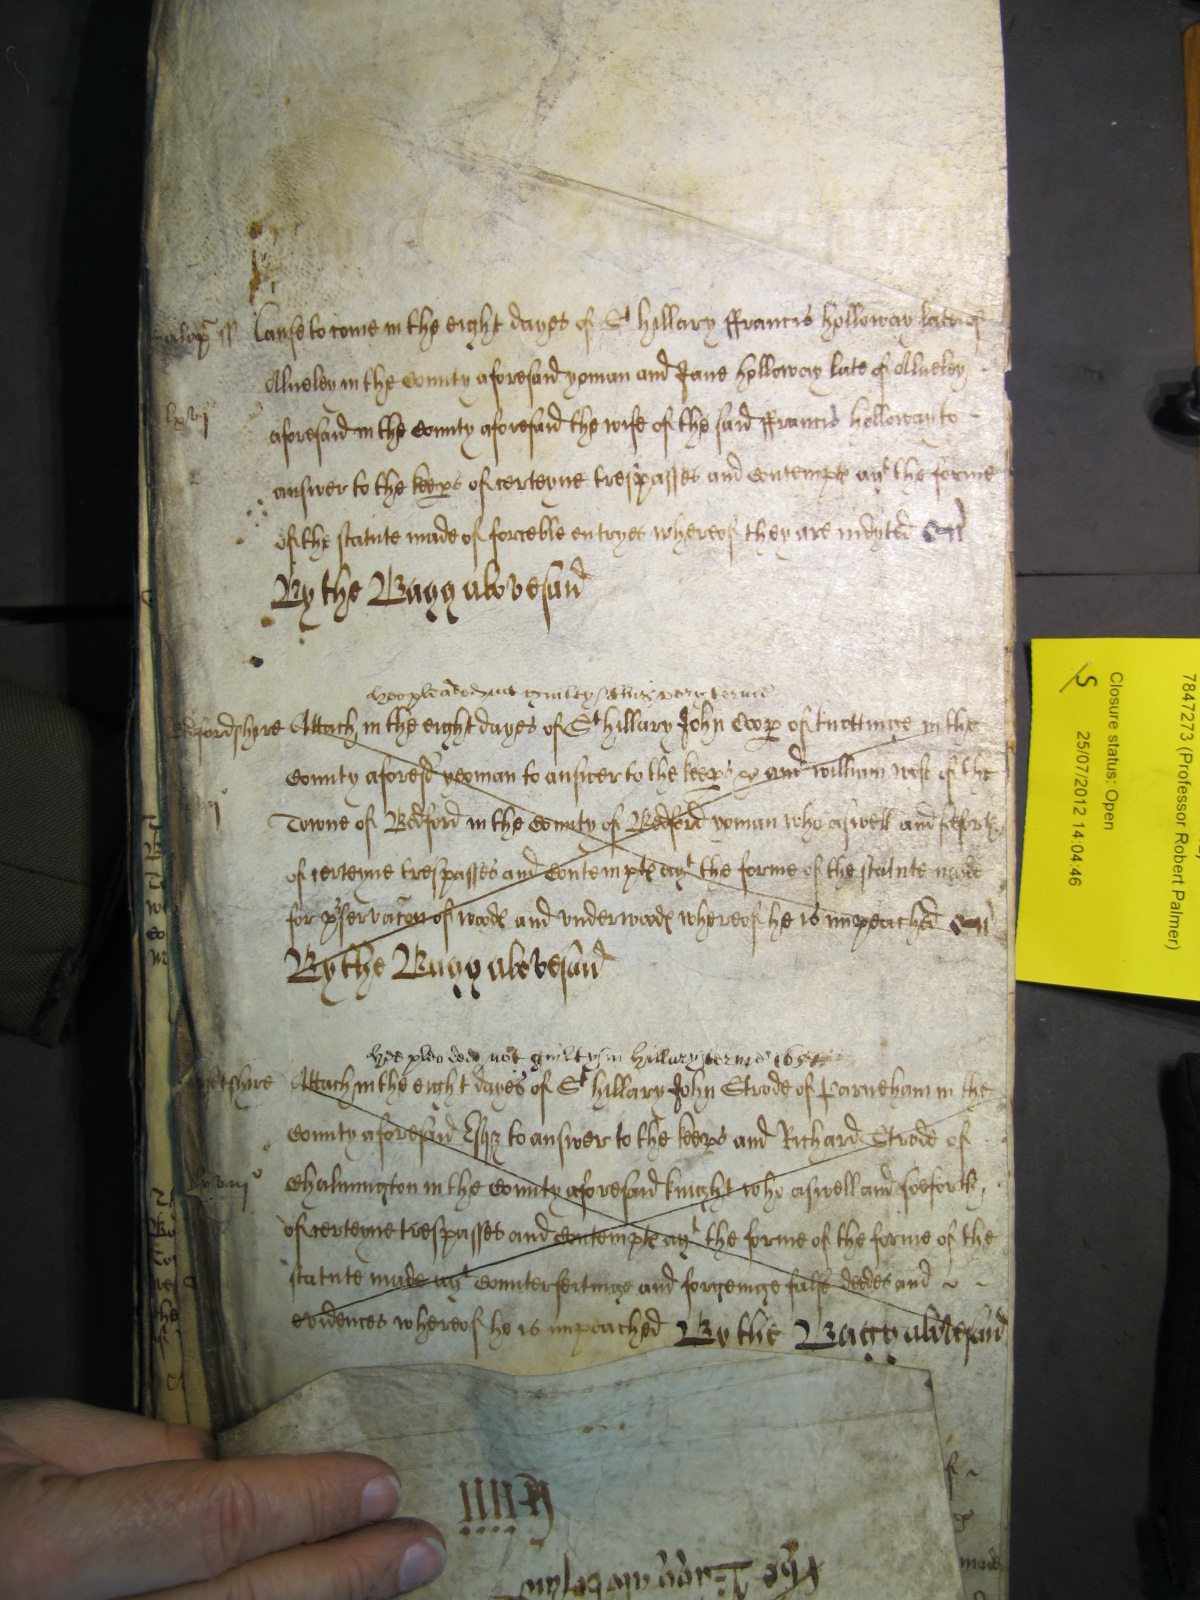 Salop ss Cause to come in the eight dayes of St Hillary ffrancis Holloway late of
Alveley in the County aforesaid yoman and Jane Holloway late of Alveley
lxvj
aforesaid in the County aforesaid the wife of the said ffrancis Holloway to
answer to the keeps of certeyne trespasses and Contempts agt the forme
of the statute made of forceble entryes whereof they are indyted
By the Bagg abovesaid
hee pleaded not guilty this very terme
Bedfordshire Attach in the eight dayes of St Hillary John Coop of in the
County aforesd yeoman to answer to the keeps and William West of the
Towne of Bedford in the County of Bedford yoman who aswell and soeforth
of certeyne trespasses and Contempts agt the forme of the statute made
for pservacon of woods and underwoods whereof he is impeached
By the Bagg abovesaid
hee pleaded not guilty in Hillary terme
Attach in the eight dayes of St Hillary John Strode of Parneham in the
County aforesaid Esqr to answer to the keeps and Richard Strode of
lxviij
Chalmington in the County aforesaid knight who aswell and soeforth
of certeyne trespasses and Contempts agt the forme of the forme of the
statute made agt Counterfeitinge and forgeinge false deedes and
evidences whereof he is impeached By the Bagg abovesaid
7847273 (Professor Robert Palmer)
Closure status: Open
25/07/2012 14:04:46
S